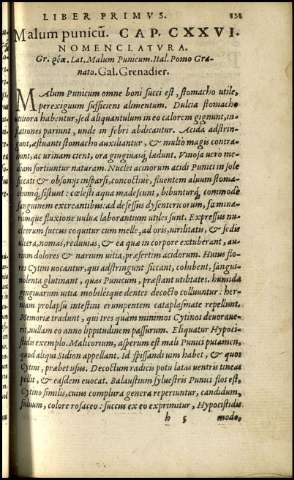 LIBER PRIMVS.
Malum punicū. CAP. CXXVI.
NOMENCLATVRA.
Gr. ῥοα. Lat. Malum Punicum. Ital. Pomo Gra-
nato. Gal. Grenadier.
MAlum Punicum omne boni succi est, stomacho utile,
perexiguum sufficiens alimentum. Dulcia stomacho
habentur, sed aliquantulum in eo calorem gignunt, in-
flationes pariunt, unde in febri abdicantur. Acida adstrin-
gunt, æstuanti stomacho auxiliantur, & multò magis contra-
hunt, ac urinam cient, ora gingiuasq; lædunt. Vinosa uero me-
diam fortiuntur naturam. Nuclei acinorum acidi Punici in sole
siccati & obsonijs inspersi, concoctiue, fluentem aluum stoma-
chumq; sistunt: cœlesti aqua madefacti, bibunturq; commodè
sanguinem excreantibus. ad desessus dysentericorum, fœmina-
rumque fluxione uulua laborantium utiles sunt. Expressus nu-
cleorum succus coquitur cum melle, ad oris, uirilitatis, & sedis
ulcera, nomas, reduuias, & ea quæ in corpore extuberant, au-
rium dolores & narium uitia, præsertim acidorum. Huius flo-
res Cytini uocantur, qui adstringunt siccant, cohibent, sangui-
nolenta glutinant, quas Punicum, præstant utilitates. humida
gingiuarum uitia mobilesque dentes decocto colluuntur: her-
niam prolapsi intestini erumpentem cataplasmate repellunt.
Memoriæ tradunt, qui tres quàm minimos Cytinos deuoraue-
rit, nullam eo anno lippitudinem passurum. Eliquatur Hypoci-
stidis exemplo. Malicorium, asperum est mali Punici putamen,
quod aliqui Sidion appellant. Id spissandi uim habet, & quos
Cytini, præbet usus. Decoctum radicis potu latas uentris tineas
pellit, & easdem euocat. Balaustium syluestris Punici flos est,
Cytino similis, cuius complura genera reperiuntur, candidum,
fuluum, colore rosaceo: succus ex eo exprimitur, Hypocistidis
h 5 modo,